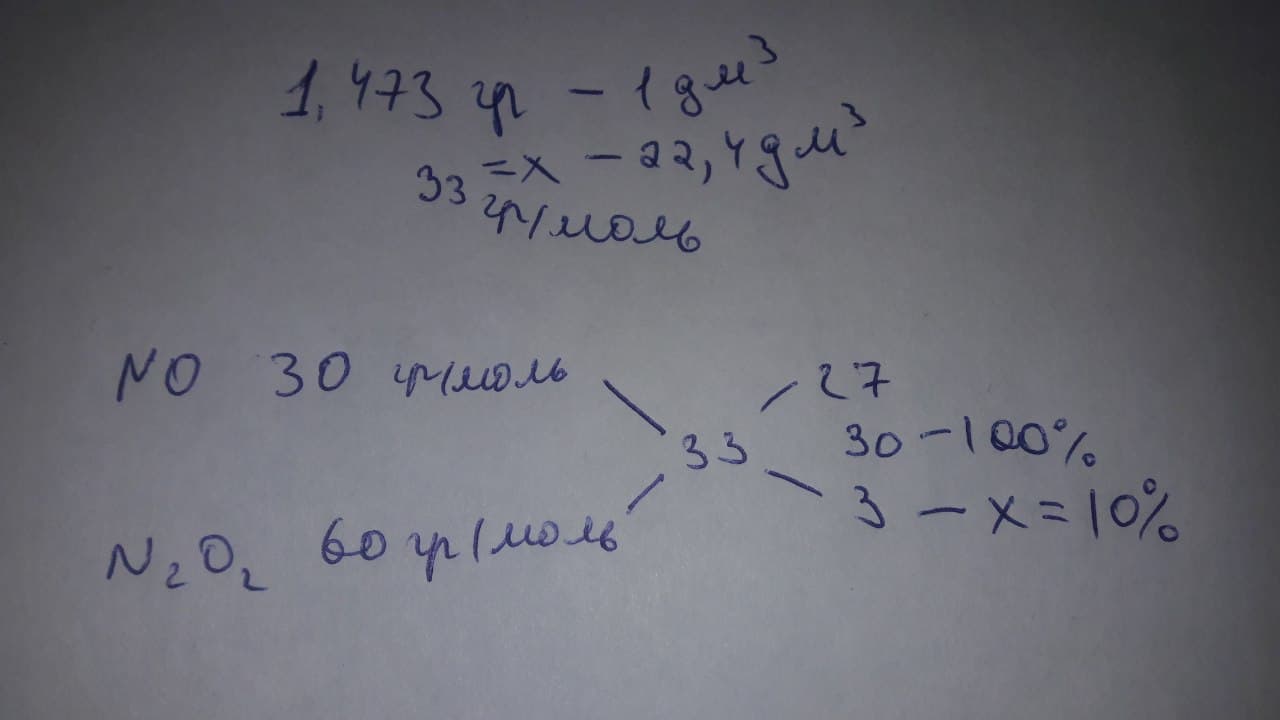 1,473 гр – 1 дм³
33 = x – 22,4 дм³
гр/моль
NO 30 гр/моль 27
33 30 – 100%
3 – x = 10%
N₂O₂ 60 гр/моль